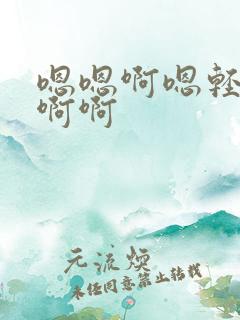 嗯嗯啊嗯轻
啊啊
元流煥
未经同意禁止转载